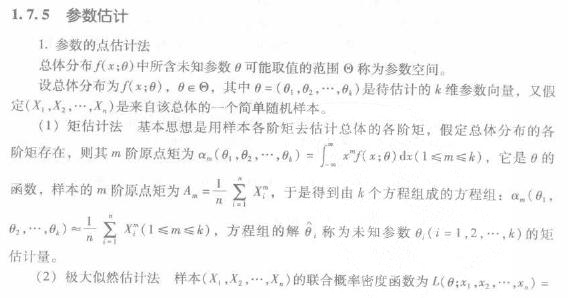 1.7.5 参数估计
1. 参数的点估计法
总体分布f(x;θ)中所含未知参数θ可能取值的范围Θ称为参数空间。
设总体分布为f(x;θ),θ∈Θ,其中θ=(θ₁,θ₂,⋯,θₖ)是待估计的k维参数向量,又假
定(X₁,X₂,⋯,Xₙ)是来自该总体的一个简单随机样本。
(1) 矩估计法 基本思想是用样本各阶矩去估计总体的各阶矩,假定总体分布的各
阶矩存在,则其m阶原点矩为αₘ(θ₁,θ₂,⋯,θₖ)=∫_{-∞}^{∞} xᵐf(x;θ)dx(1≤m≤k),它是θ的
函数,样本的m阶原点矩为Aₘ=\frac{1}{n}∑_{i=1}^{n} Xᵢᵐ,于是得到由k个方程组成的方程组:αₘ(θ₁,
θ₂,⋯,θₖ)≈\frac{1}{n}∑_{i=1}^{n} Xᵢᵐ(1≤m≤k),方程组的解θ̂ᵢ称为未知参数θᵢ(i=1,2,⋯,k)的矩
估计量。
(2) 极大似然估计法 样本(X₁,X₂,⋯,Xₙ)的联合概率密度函数为L(θ;x₁,x₂,⋯,xₙ)=